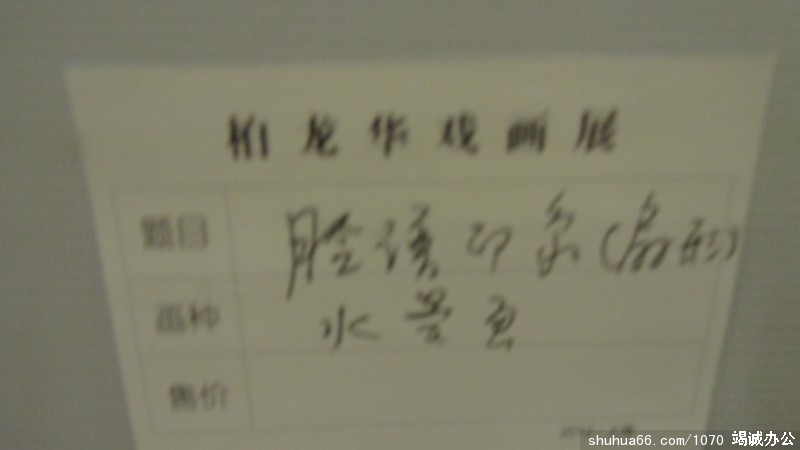 柏龙华戏画展
题目 脸谱印象(扇形)
画种 水墨画
售价
shuhua66.com/1070 竭诚办公